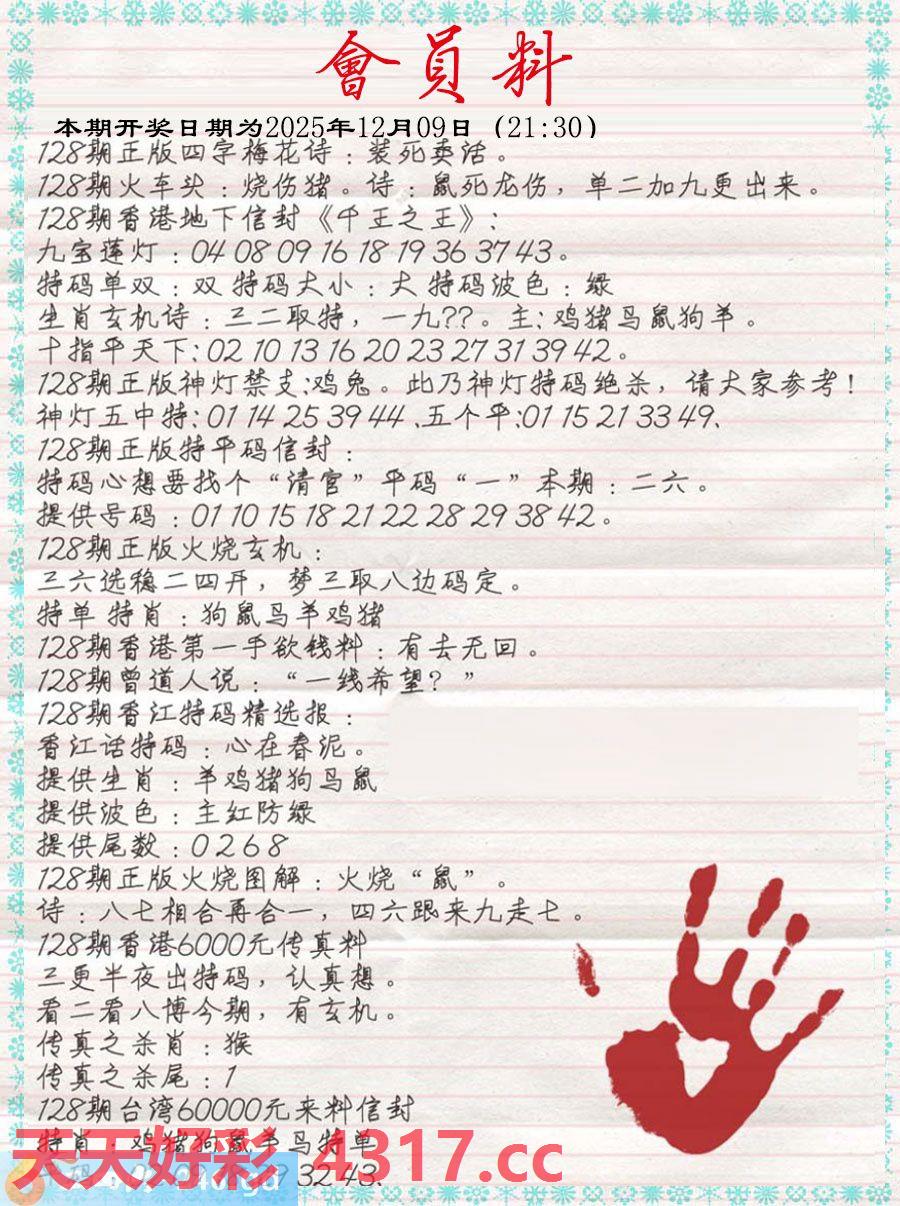 會員料
本期开奖日期为2025年12月09日（21:30）
128期正版四字梅花诗：装死卖活。
128期火车头：烧伤猪。诗：鼠死龙伤，单二加九更出来。
128期香港地下信封《千王之王》：
九宝莲灯：04 08 09 16 18 19 36 37 43。
特码单双：双 特码大小：大 特码波色：绿
生肖玄机诗：三二取特，一九??。主：鸡猪马鼠狗羊。
十指平天下：02 10 13 16 20 23 27 31 39 42。
128期正版神灯禁支：鸡兔。此乃神灯特码绝杀，请大家参考！
神灯五中特：01 14 25 39 44 .五个平：01 15 21 33 49.
128期正版特平码信封：
特码心想要找个“清官”平码“一”本期：二六。
提供号码：01 10 15 18 21 22 28 29 38 42。
128期正版火烧玄机：
三六选稳二四开，梦三取八边码定。
特单 特肖：狗鼠马羊鸡猪
128期香港第一手欲钱料：有去无回。
128期曾道人说：“一线希望？”
128期香江特码精选报：
香江话特码：心在春泥。
提供生肖：羊鸡猪狗马鼠
提供波色：主红防绿
提供尾数：0 2 6 8
128期正版火烧图解：火烧“鼠”。
诗：八七相合再合一，四六跟来九走七。
128期香港6000元传真料
三更半夜出特码，认真想。
看二看八博今期，有玄机。
传真之杀肖：猴
传真之杀尾：1
128期台湾60000元来料信封
特肖：鸡猪狗鼠羊马特单
天天好彩 4317.cc
32 43.